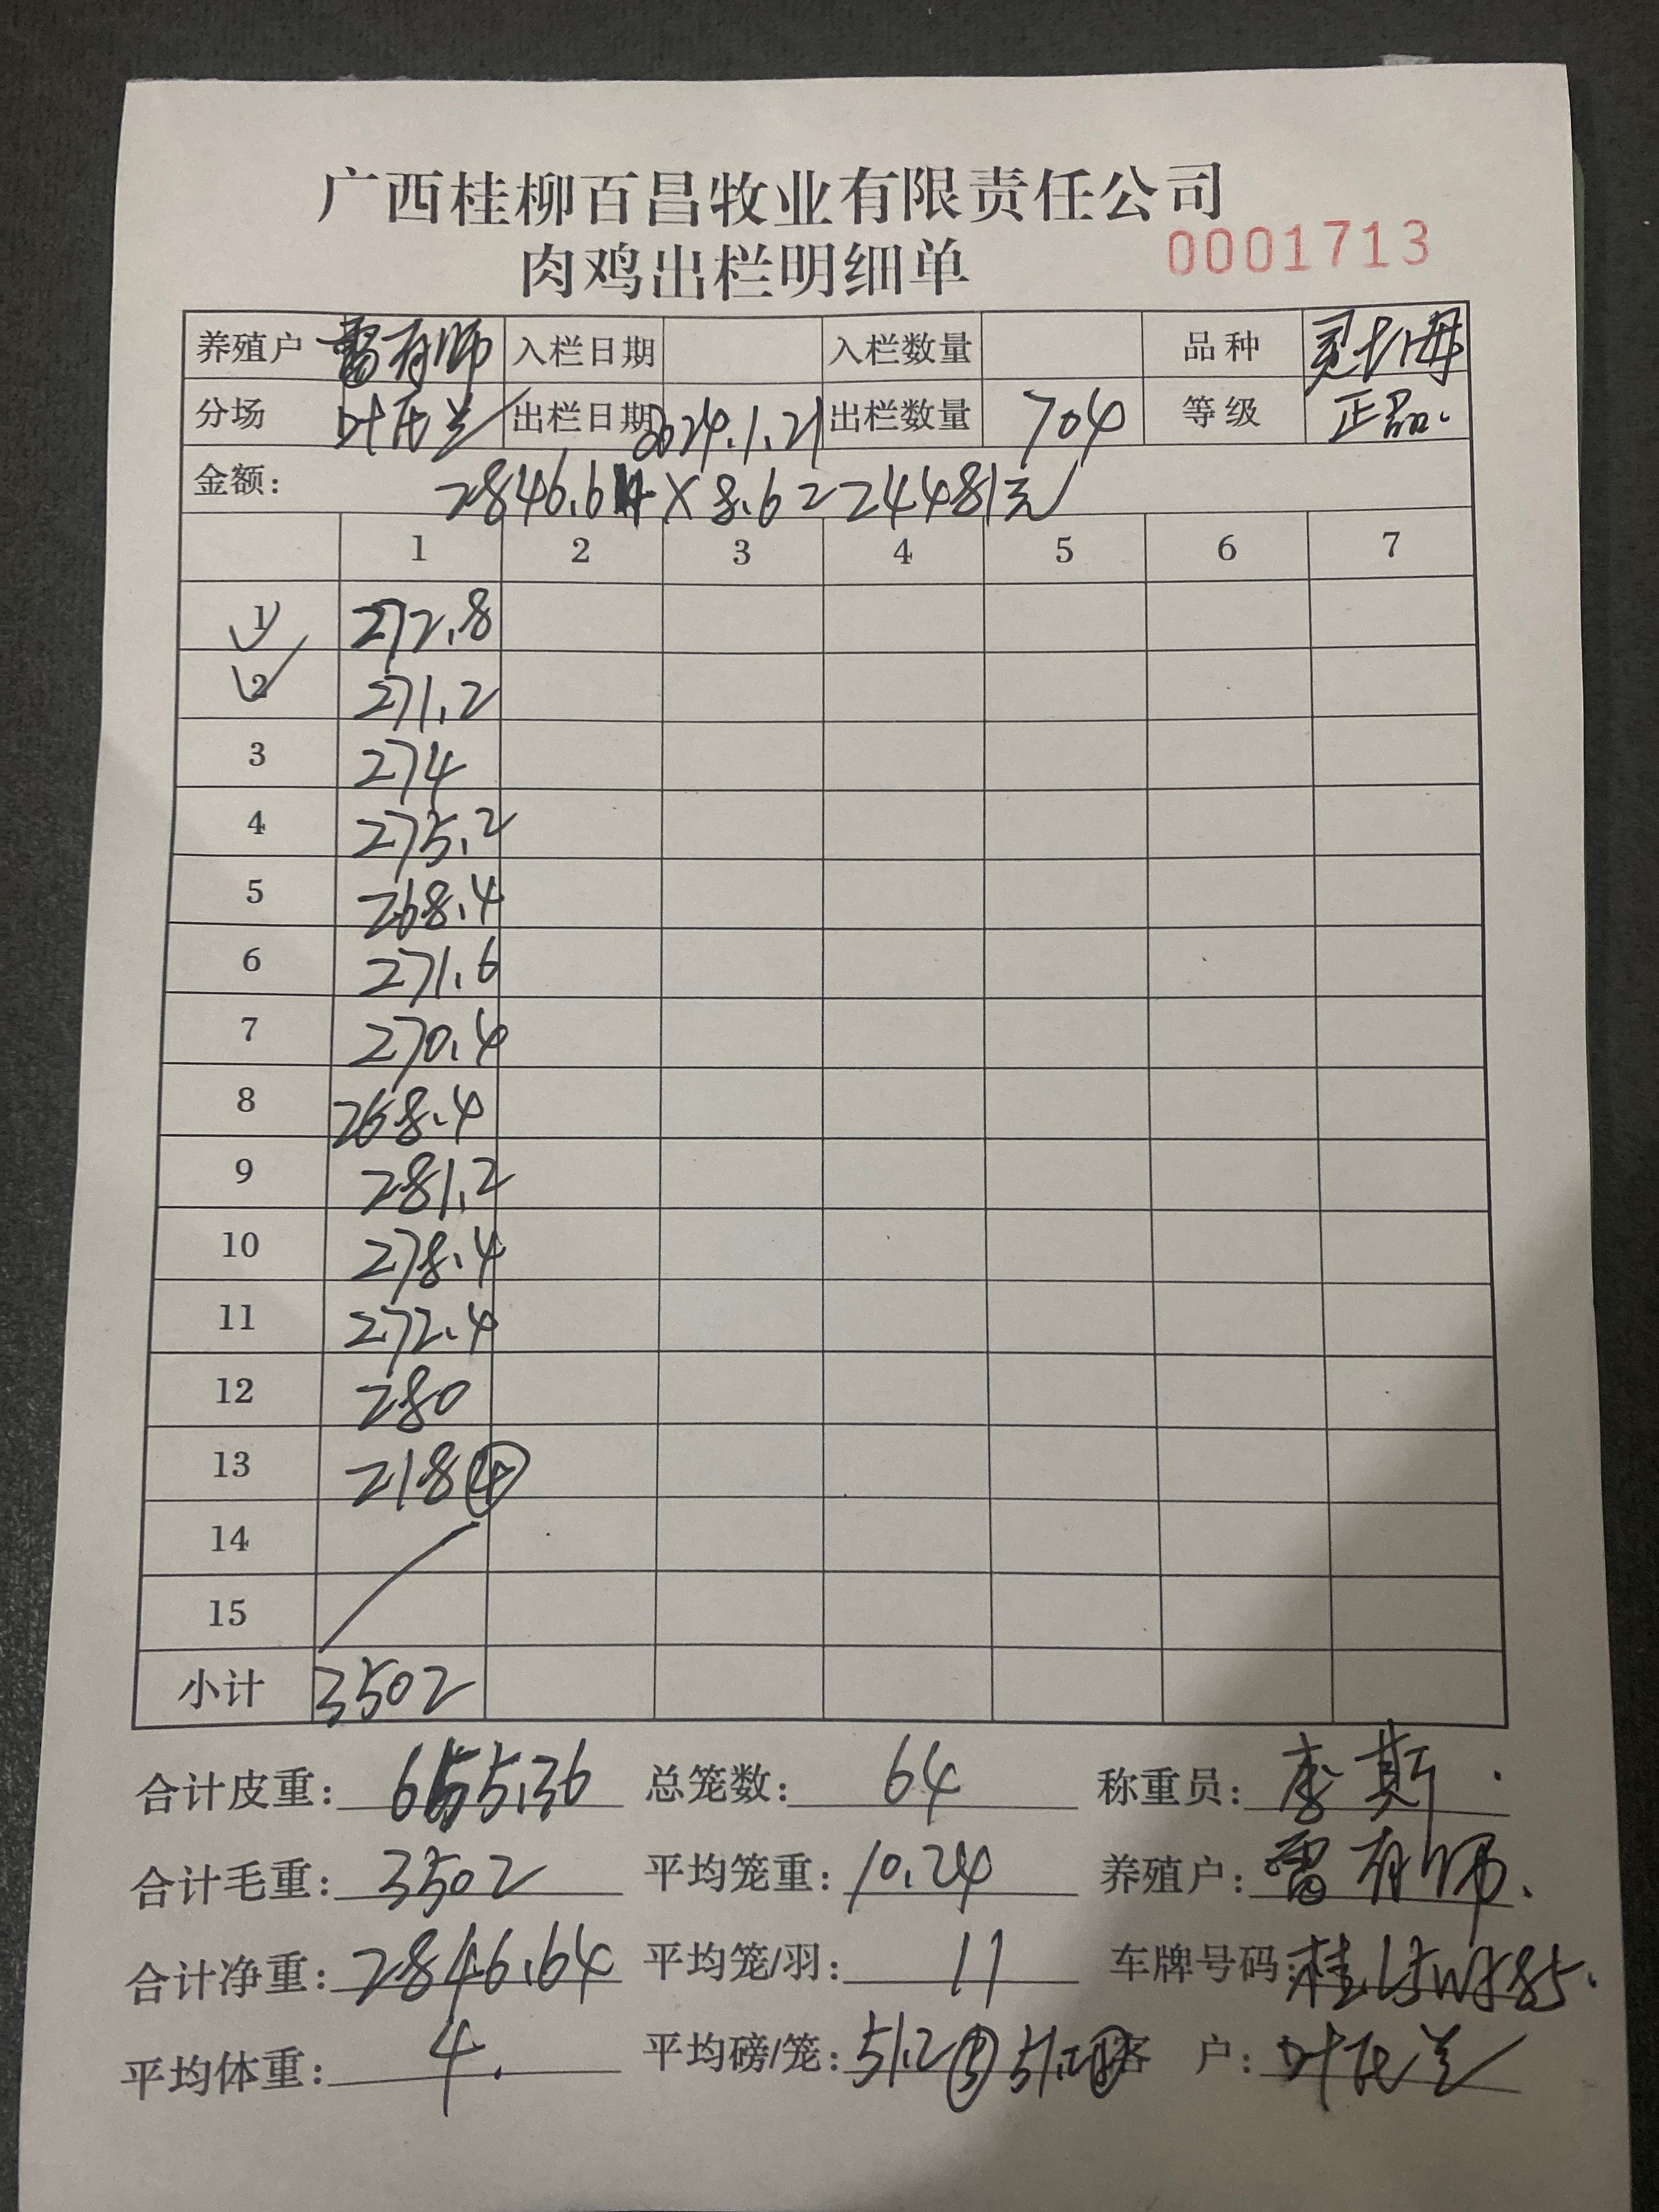 广西桂柳百昌牧业有限责任公司
肉鸡出栏明细单 0001713
养殖户 雷有师 入栏日期 入栏数量 品种
分场 叶氏兰 出栏日期 2024.1.21 出栏数量 704 等级 正品.
金额: 2846.64 X 8.6 = 24481元
1 2 3 4 5 6 7
1 272.8
2 271.2
3 274
4 275.2
5 268.4
6 271.6
7 270.4
8 268.4
9 281.2
10 278.4
11 272.4
12 280
13 218 ④
14
15
小计 3502
合计皮重: 655.36 总笼数: 64 称重员: 李斯.
合计毛重: 3502 平均笼重: 10.24 养殖户: 雷有师.
合计净重: 2846.64 平均笼/羽: 11 车牌号码: 桂
平均体重: 4. 平均磅/笼: 51.2 ⑤ 客 户: 叶氏兰